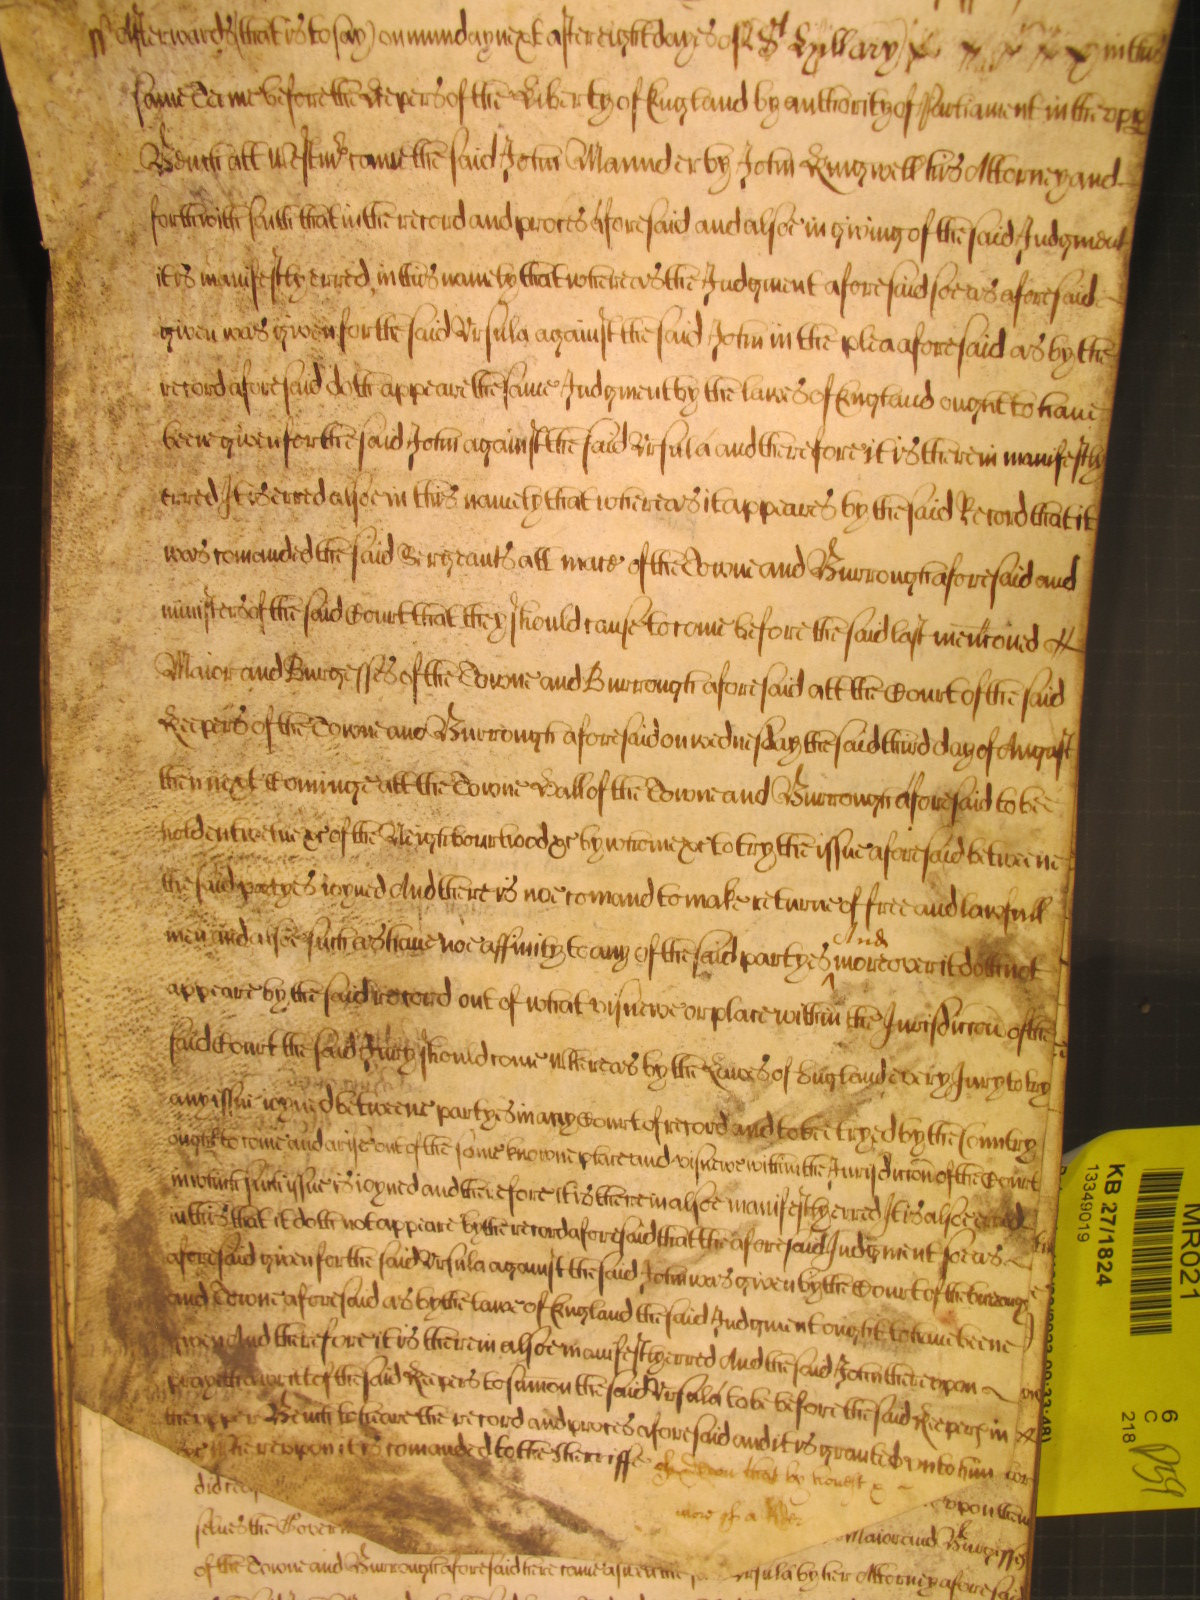 Afterwards (that is to say) on munday next after eight dayes of St Hyllary in this
same Terme before the Keepers of the Liberty of England by authority of Parliament in the upp
Bench att Westmr came the said John Maunder by John Ringwell his Attorney and
forthwith saith that in the record and proces aforesaid and alsoe in giving of the said Judgment
it is manifestly erred, in this namely that whereas the Judgment aforesaid soe as aforesaid
given was given for the said Ursula against the said John in the plea aforesaid as by the
record aforesaid doth appeare the same Judgment by the lawes of England ought to have
beene given for the said John against the said Ursula and therefore it is therein manifestly
erred It is erred alsoe in this namely that whereas it appeares by the said Record that it
was comanded the said Sergeants att mace of the Towne and Burrough aforesaid and
ministers of the said Court that they should cause to come before the said last menconed
Maior and Burgesses of the Towne and Burrough aforesaid att the Court of the said
Keepers of the Towne and Burrough aforesaid on wednesday the said third day of August
then next Cominge att the Towne Hall of the Towne and Burrough aforesaid to be
holden twelve &c of the Neighbourhood &c by whome &c to try the issue aforesaid betweene
the said partyes ioyned And there is noe comand to make returne of free and lawfull
men and alsoe such as have noe affinity to any of the said partyes And moreover it doth not
appeare by the said record out of what visnewe or place within the Jurisdiccon of the
said Court the said Jury should come Whereas by the Lawes of England every Jury to try
any issue ioyned betweene partyes in any Court of record and to bee tryed by the Country
ought to come and arise out of the same knowne place and visnewe within the Jurisdiccon of the Court
in which such issue is ioyned and therefore it is therein alsoe manifestly erred It is alsoe erred
in this that it doth not appeare by the record aforesaid that the aforesaid Judgment soe as
aforesaid given for the said Ursula against the said John was given by the Court of the burrough
and Towne aforesaid as by the lawe of England the said Judgment ought to have beene
given And therefore it is therein alsoe manifestly erred And the said John thereupon
prayeth a writ of the said Keepers to sumon the said Ursula to be before the said Keepers in
the upper Bench to heare the record and proces aforesaid and it is graunted unto him
&c Whereupon it is comanded to the Sherriffe
did upon them
selves the Maior and Burgesses
of the Towne and Burrough aforesaid here came Ursula by her Attorney aforesaid
MR021
KB 27/1824
13349019
6
C
218